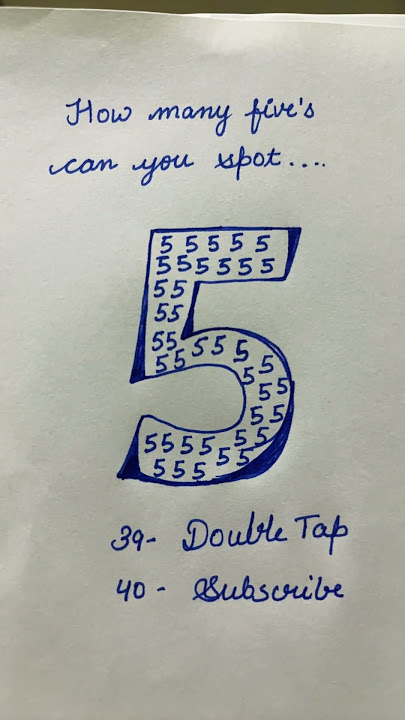 How many five's
can you spot....
5 5 5 5 5
5 5 5 5 5 5
55
55
55 5 5 5
55 55
55
55
5555 55
555 55
39- Double Tap
40- Subscribe